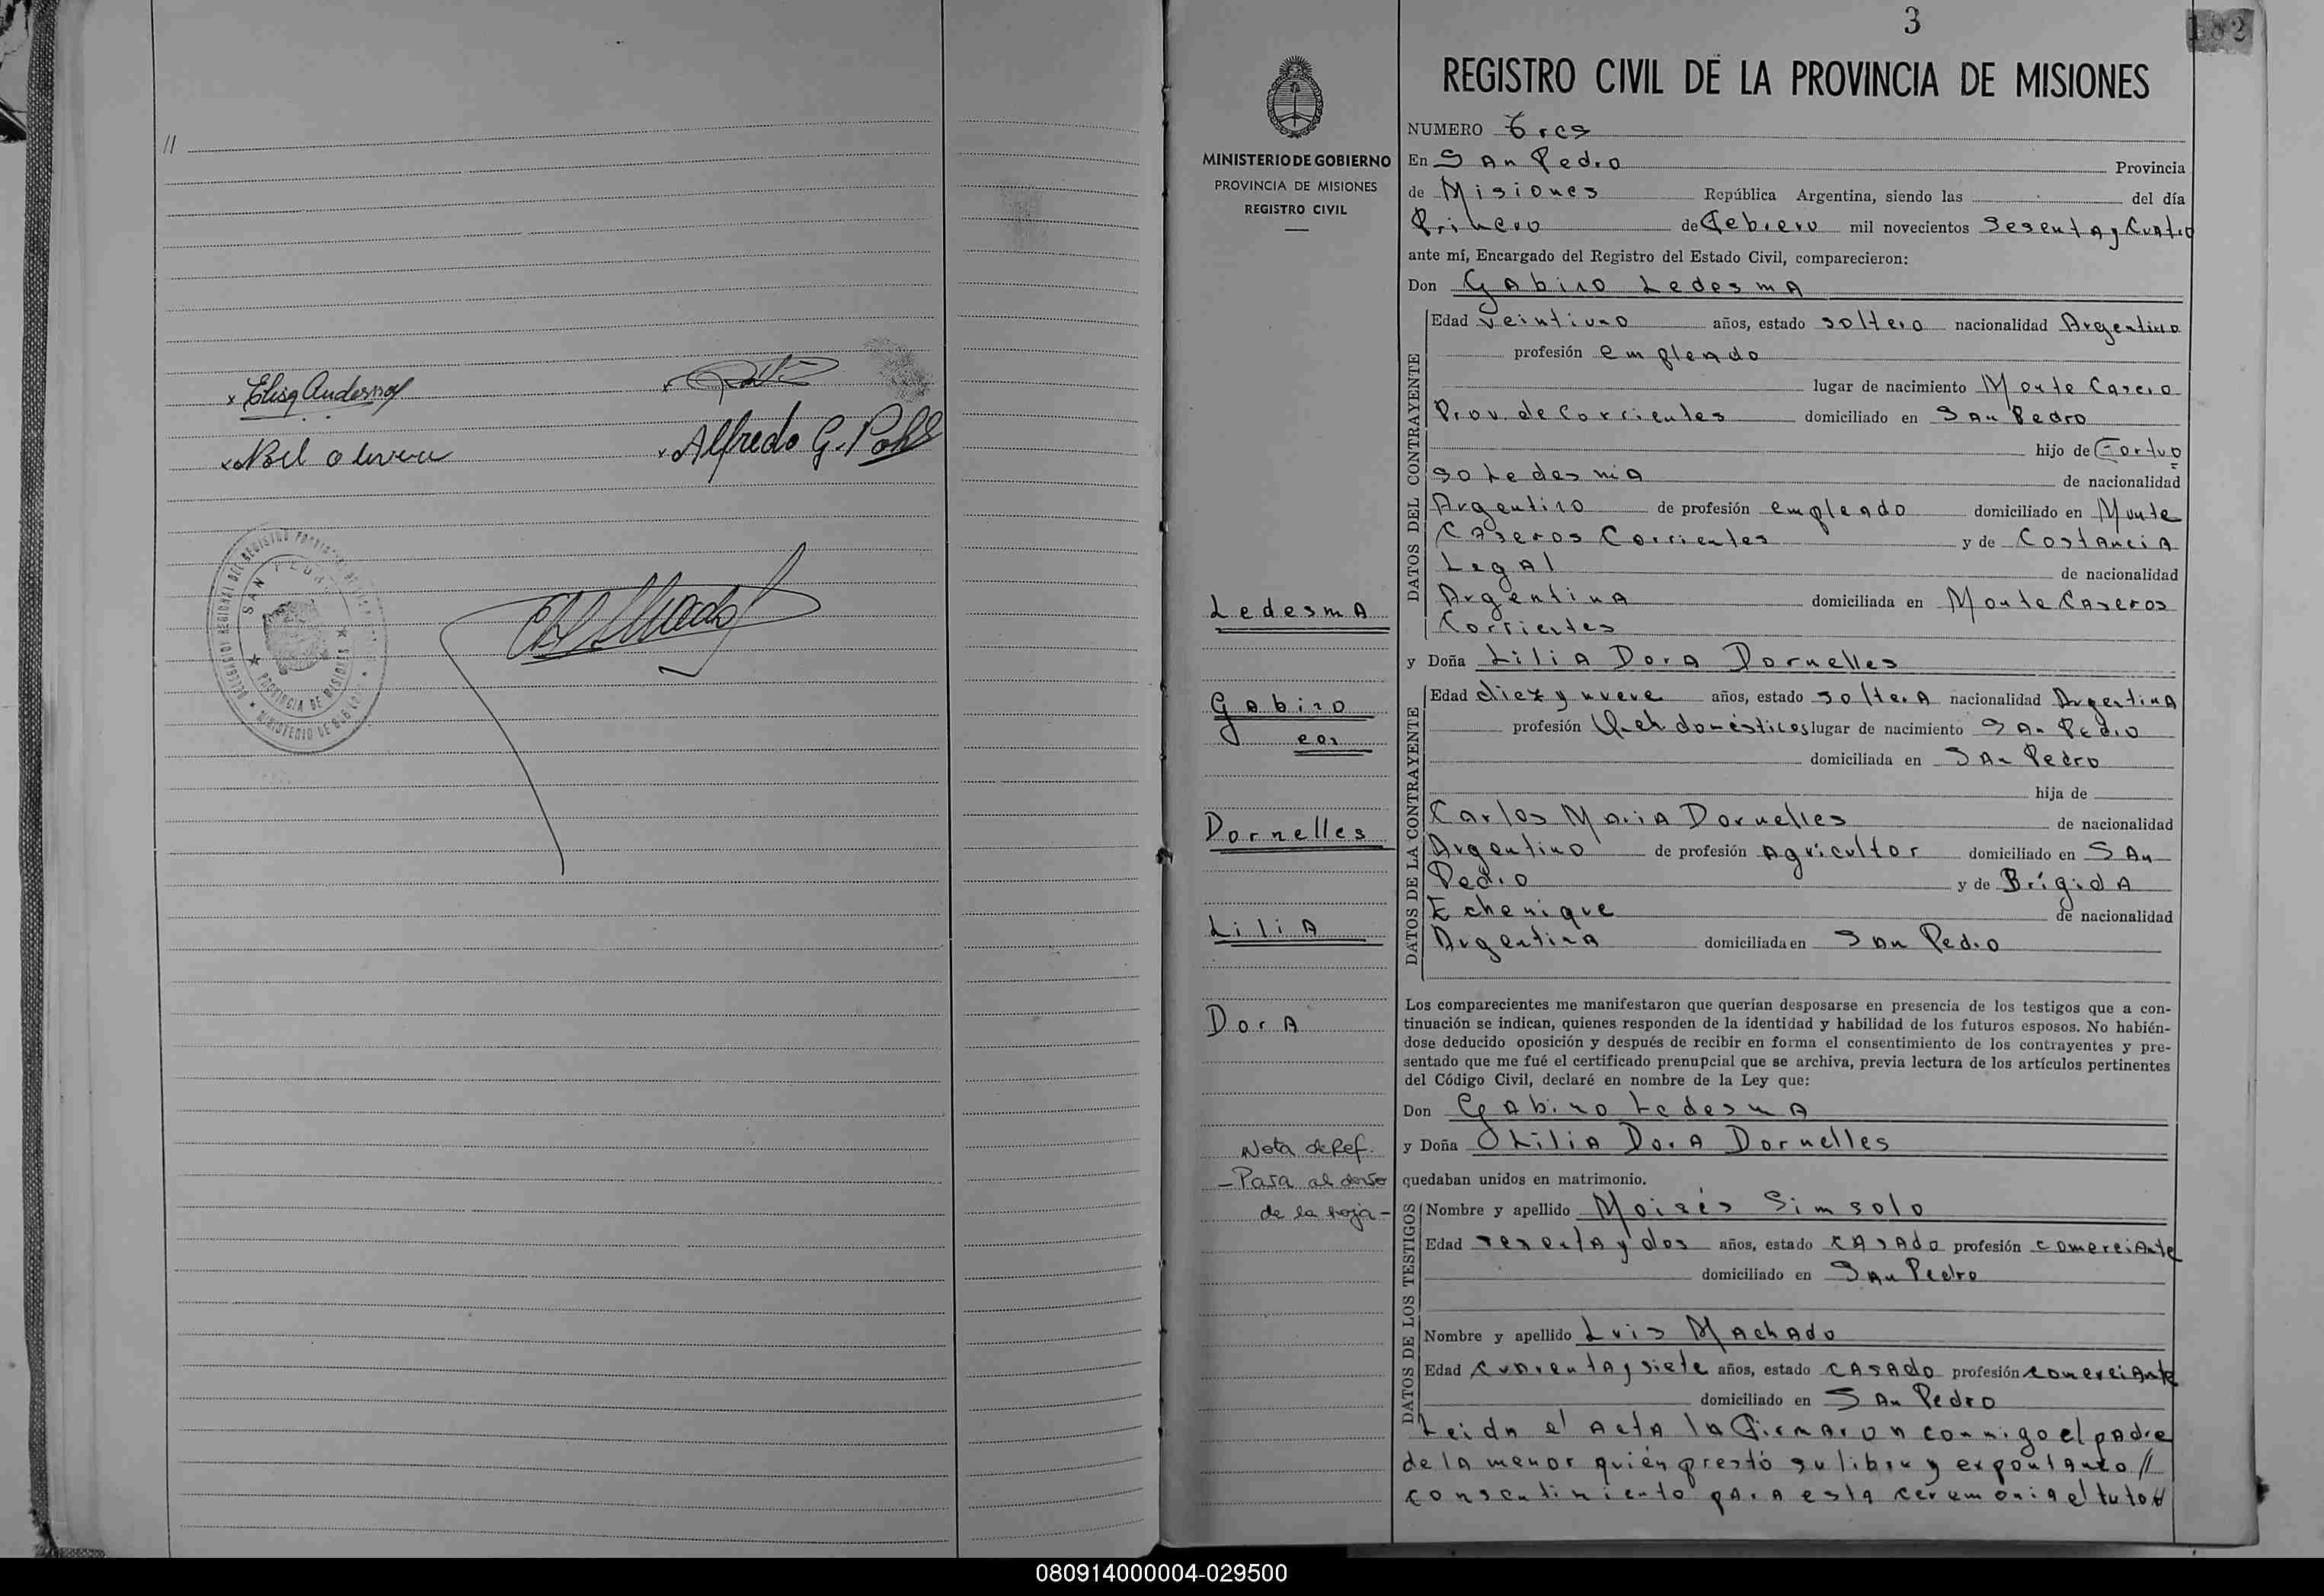 //
Elisa Anderson
Alfredo G. Pohl
SAN PEDRO
PROVINCIA DE MISIONES
3
182
REGISTRO CIVIL DE LA PROVINCIA DE MISIONES
MINISTERIO DE GOBIERNO
PROVINCIA DE MISIONES
REGISTRO CIVIL
NUMERO Tres
En San Pedro Provincia
de Misiones República Argentina, siendo las del día
Primero de Febrero mil novecientos Sesenta y Cuatro
ante mí, Encargado del Registro del Estado Civil, comparecieron:
Don Gabino Ledesma
DATOS DEL CONTRAYENTE
Edad Veintiuno años, estado soltero nacionalidad Argentino
profesión empleado
lugar de nacimiento Monte Casero
Prov. de Corrientes domiciliado en San Pedro
hijo de Fortuo
so Ledesma de nacionalidad
Argentino de profesión empleado domiciliado en Monte
Caseros Corrientes y de Costancia
Legal de nacionalidad
Argentina domiciliada en Monte Caseros
Corrientes
y Doña Lilia Dora Dornelles
DATOS DE LA CONTRAYENTE
Edad diez y nueve años, estado soltera nacionalidad Argentina
profesión Queh domésticos lugar de nacimiento San Pedro
domiciliada en San Pedro
hija de
Carlos Maria Dornelles de nacionalidad
Argentino de profesión Agricultor domiciliado en San
Pedro y de Brígida
Echenique de nacionalidad
Argentina domiciliada en San Pedro
Ledesma
Gabino
con
Dornelles
Lilia
Dora
Nota de Ref.
- Pasa al dorso
de la hoja -
Los comparecientes me manifestaron que querían desposarse en presencia de los testigos que a con-
tinuación se indican, quienes responden de la identidad y habilidad de los futuros esposos. No habién-
dose deducido oposición y después de recibir en forma el consentimiento de los contrayentes y pre-
sentado que me fué el certificado prenupcial que se archiva, previa lectura de los artículos pertinentes
del Código Civil, declaré en nombre de la Ley que:
Don Gabino Ledesma
y Doña Lilia Dora Dornelles
quedaban unidos en matrimonio.
DATOS DE LOS TESTIGOS
Nombre y apellido Moisés Simsolo
Edad sesenta y dos años, estado casado profesión comerciante
domiciliado en San Pedro
Nombre y apellido Luis Machado
Edad cuarenta y siete años, estado casado profesión comerciante
domiciliado en San Pedro
Leida el acta la firmaron conmigo el padre
de la menor quién prestó su libre y expontaneo //
consentimiento para esta ceremonia el tutor
080914000004-029500